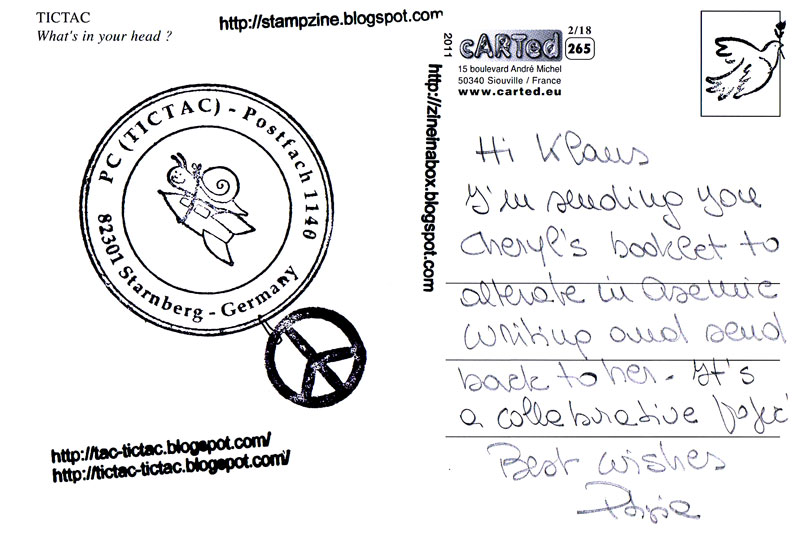 TICTAC
What's in your head ?
http://stampzine.blogspot.com
PC (TICTAC) - Postfach 1140
82301 Starnberg - Germany
http://tac-tictac.blogspot.com/
http://tictac-tictac.blogspot.com/
2011
http://zineinabox.blogspot.com
cARTed
2/18
265
15 boulevard André Michel
50340 Siouville / France
www.carted.eu
Hi Klaus
I'm sending you
Cheryl's booklet to
alterate in asemic
writing and send
back to her. It's
a collaborative
Best wishes